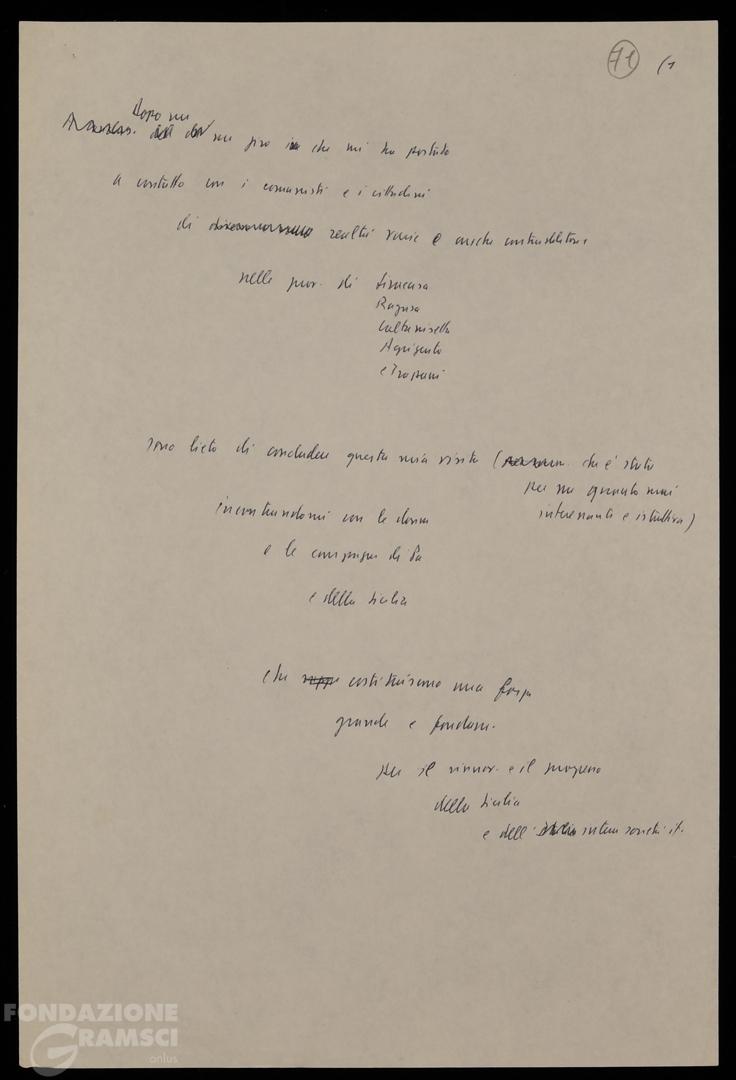 71 (1
Dopo un
un giro che mi ha portato
a contatto con i comunisti e i cittadini
di realtà varie e anche contraddittorie
nelle prov. di Siracusa
Ragusa
Caltanisetta
Agrigento
e Trapani
sono lieto di concludere questa mia visita ( che è stata
per me quanto mai
interessante e istruttiva)
incontrandomi con le donne
e le compagne di Pa
e della Sicilia
che costituiscono una forza
grande e fondam.
per il rinnov. e il progresso
della Sicilia
e dell' intera società it.
FONDAZIONE
GRAMSCI
onlus